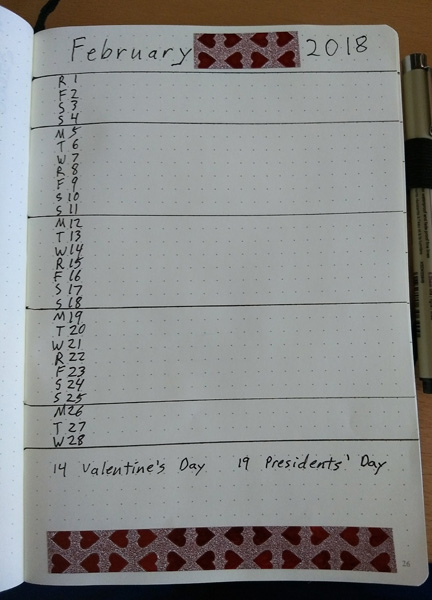 February 2018
R 1
F 2
S 3
S 4
M 5
T 6
W 7
R 8
F 9
S 10
S 11
M 12
T 13
W 14
R 15
F 16
S 17
S 18
M 19
T 20
W 21
R 22
F 23
S 24
S 25
M 26
T 27
W 28
14 Valentine's Day 19 Presidents' Day
26